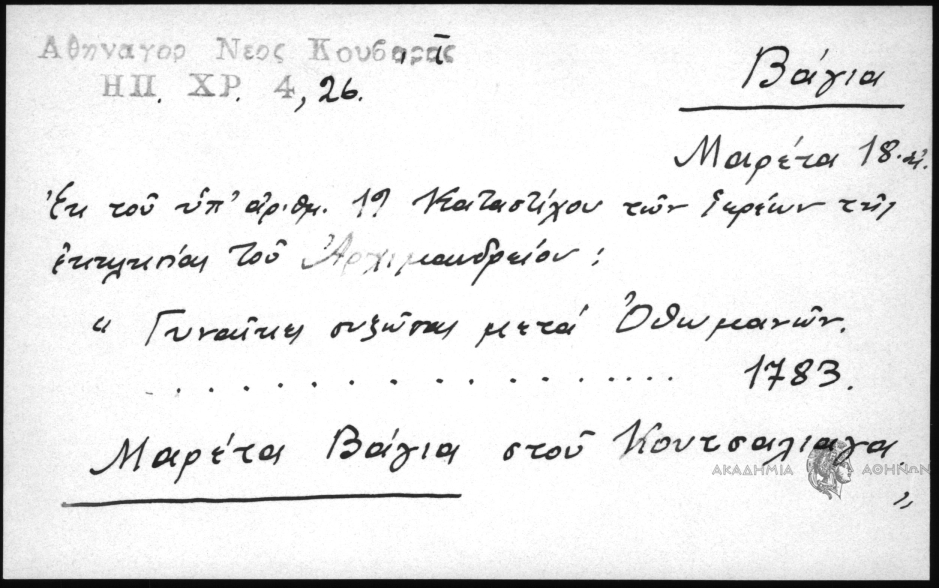 Αθηναγορ Νεος Κουβαρᾶς
ΗΠ. ΧΡ. 4, 26.
Βάγια
Μαρέτα 18.αἰ.
Ἐκ τοῦ ὑπ' ἀριθμ. 19 Καταστίχου τῶν ἱερείων τῆς
ἐκκλησίας τοῦ Ἀρχιμανδρείου:
“ Γυναῖκες συζῶσαι μετά Ὀθωμανῶν.
. . . . . . . . . . . . . . . . . . . 1783.
Μαρέτα Βάγια στοῦ Κουτσαλιαγα
ΑΚΑΔΗΜΙΑ ΑΘΗΝΩΝ
”